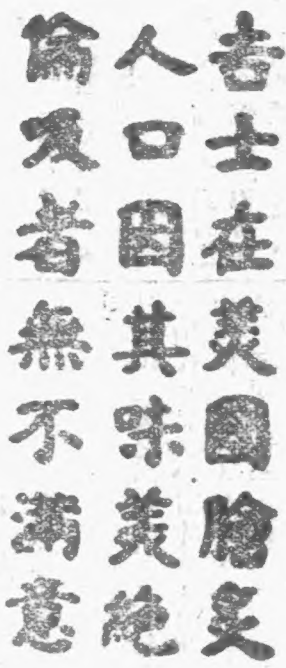 吉士在美國膾炙
人口因其味美絕
倫吸者無不滿意